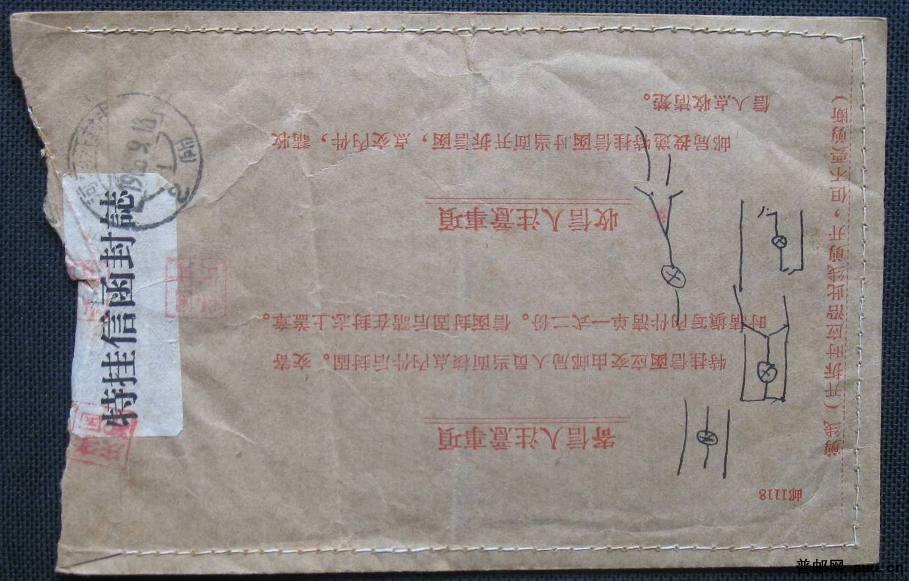 邮1118
寄信人注意事項
特挂信函应交由邮局人员当面核点内件后封固。交寄
时请填写内件清单一式二份。信函封固后请在封志上盖章。
收信人注意事項
邮局投递特挂信函时当面开拆信函，点交内件，请收
信人点收清楚。
剪线（开拆时应沿此线剪开，但不要剪断）
特挂信函封誌
普邮网